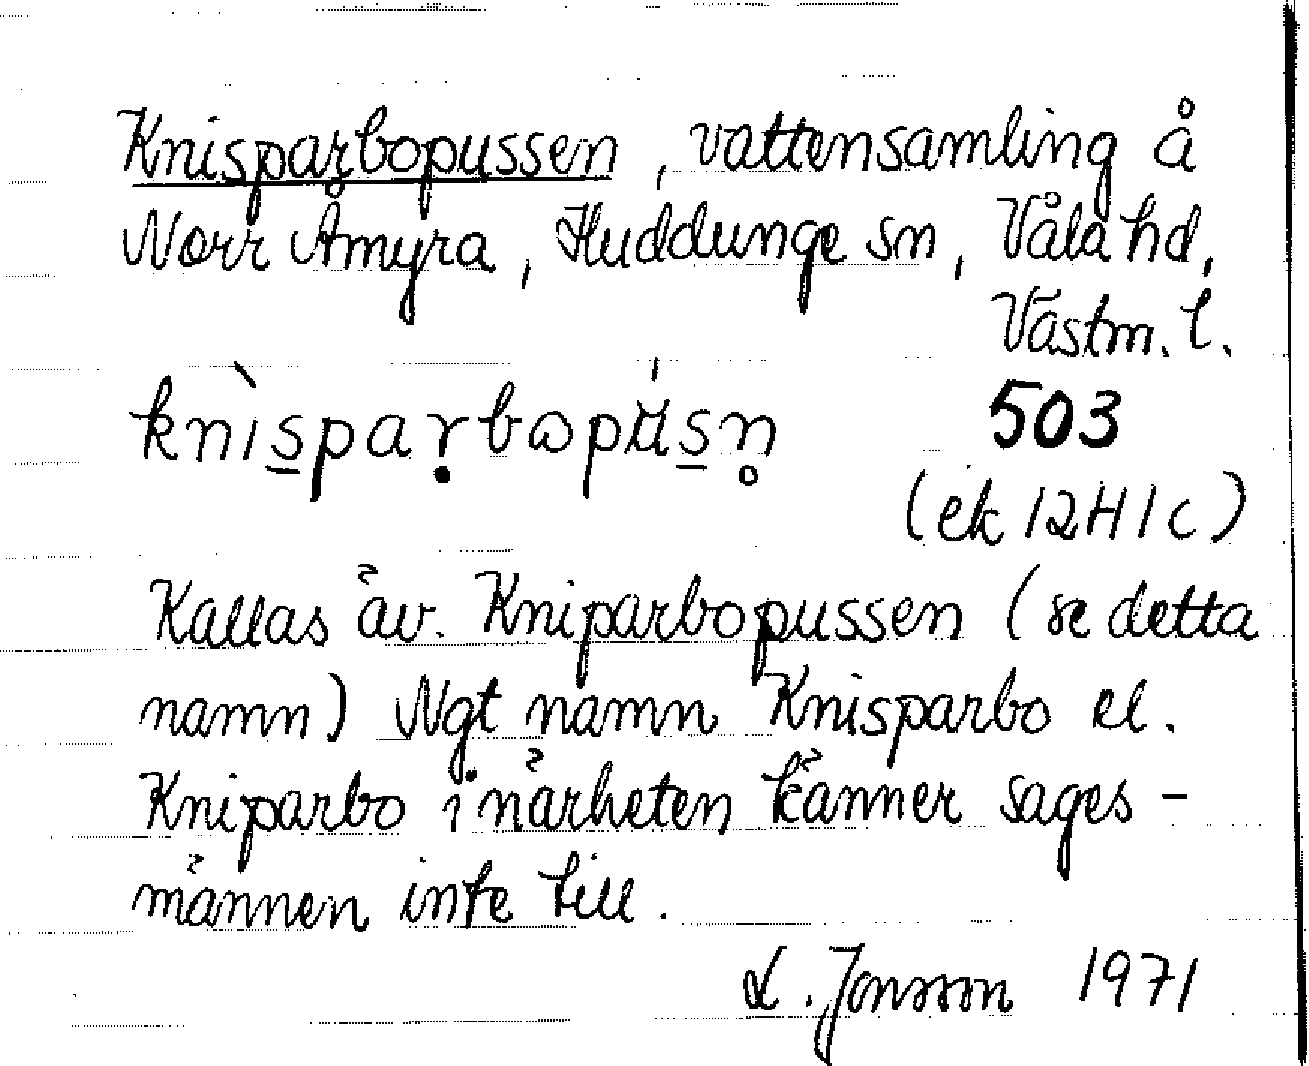 Knisparbopussen, vattensamling å
Norr Åmyra, Huddunge sn, Våla hd,
Västm. l.
knìsparbopusn 503
(ek 12H1c)
Kallas äv. Kniparbopussen (se detta
namn) Ngt namn Knisparbo el.
Kniparbo i närheten känner sages-
männen inte till.
L. Jonsson 1971